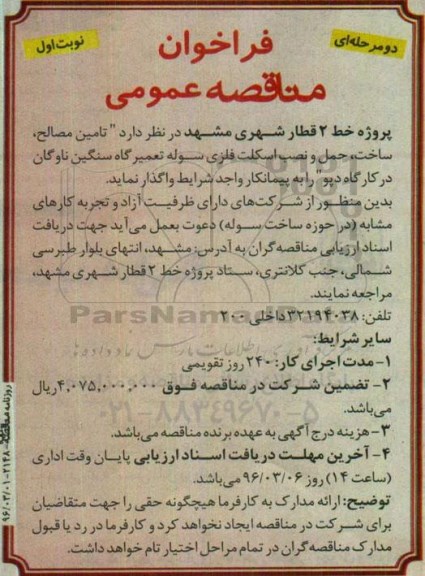 دو مرحله‌ای
نوبت اول
فراخوان
مناقصه عمومی
پروژه خط ۲ قطار شهری مشهد در نظر دارد " تامین مصالح،
ساخت، حمل و نصب اسکلت فلزی سوله تعمیرگاه سنگین ناوگان
در کارگاه دپو" را به پیمانکار واجد شرایط واگذار نماید.
بدین منظور از شرکت‌های دارای ظرفیت آزاد و تجربه کارهای
مشابه (در حوزه ساخت سوله) دعوت بعمل می‌آید جهت دریافت
اسناد ارزیابی مناقصه‌گران به آدرس: مشهد، انتهای بلوار طبرسی
شمالی، جنب کلانتری، ستاد پروژه خط ۲ قطار شهری مشهد،
مراجعه نمایند.
تلفن: ۳۲۱۹۴۰۳۸ داخلی ۲۰۰
ParsNamadData
سایر شرایط:
۱- مدت اجرای کار: ۲۴۰ روز تقویمی
۲- تضمین شرکت در مناقصه فوق ۴,۰۷۵,۰۰۰,۰۰۰ ریال
می‌باشد.
۰۲۱-۸۸۳۴۹۶۷۰-۵
۳- هزینه درج آگهی به عهده برنده مناقصه می‌باشد.
۴- آخرین مهلت دریافت اسناد ارزیابی پایان وقت اداری
(ساعت ۱۴) روز ۹۶/۰۳/۰۶ می‌باشد.
توضیح: ارائه مدارک به کارفرما هیچگونه حقی را جهت متقاضیان
برای شرکت در مناقصه ایجاد نخواهد کرد و کارفرما در رد یا قبول
مدارک مناقصه‌گران در تمام مراحل اختیار تام خواهد داشت.
روزنامه مناقصه ۲۱۴۸-۹۶/۰۳/۰۱